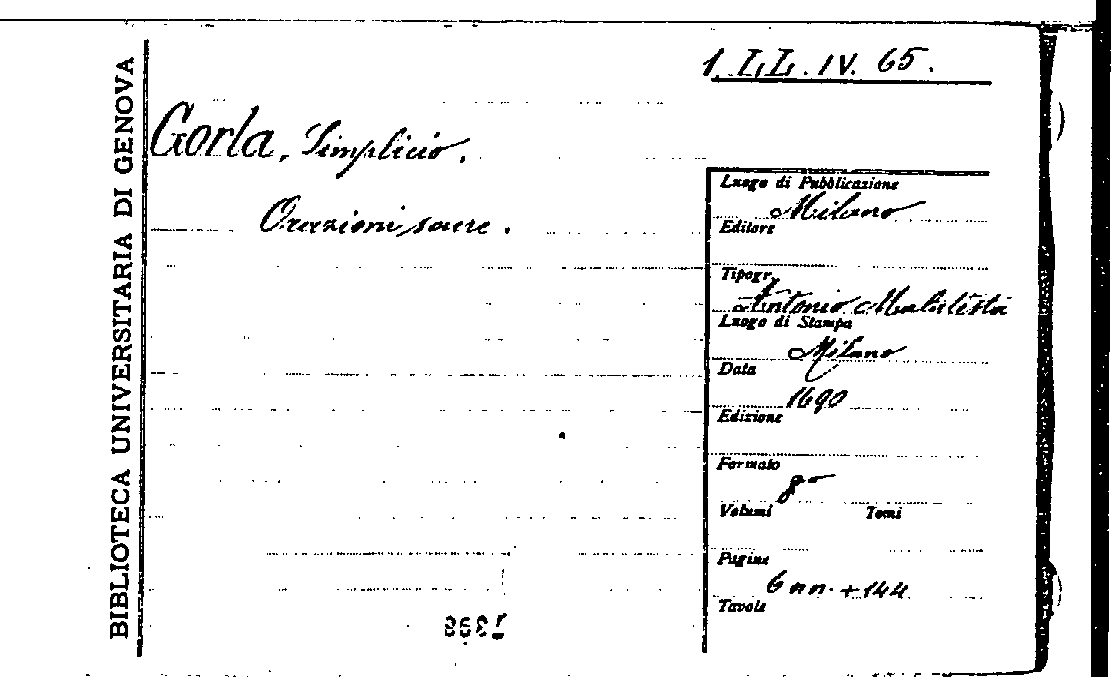 1. LL. IV. 65.
BIBLIOTECA UNIVERSITARIA DI GENOVA
Gorla, Simplicio.
Orazioni sacre.
Luogo di Pubblicazione
Milano
Editore
Tipogr.
Antonio Malatesta
Luogo di Stampa
Milano
Data
1690
Edizione
Formato
8°
Volumi Tomi
Pagine
6 nn. + 144
Tavole